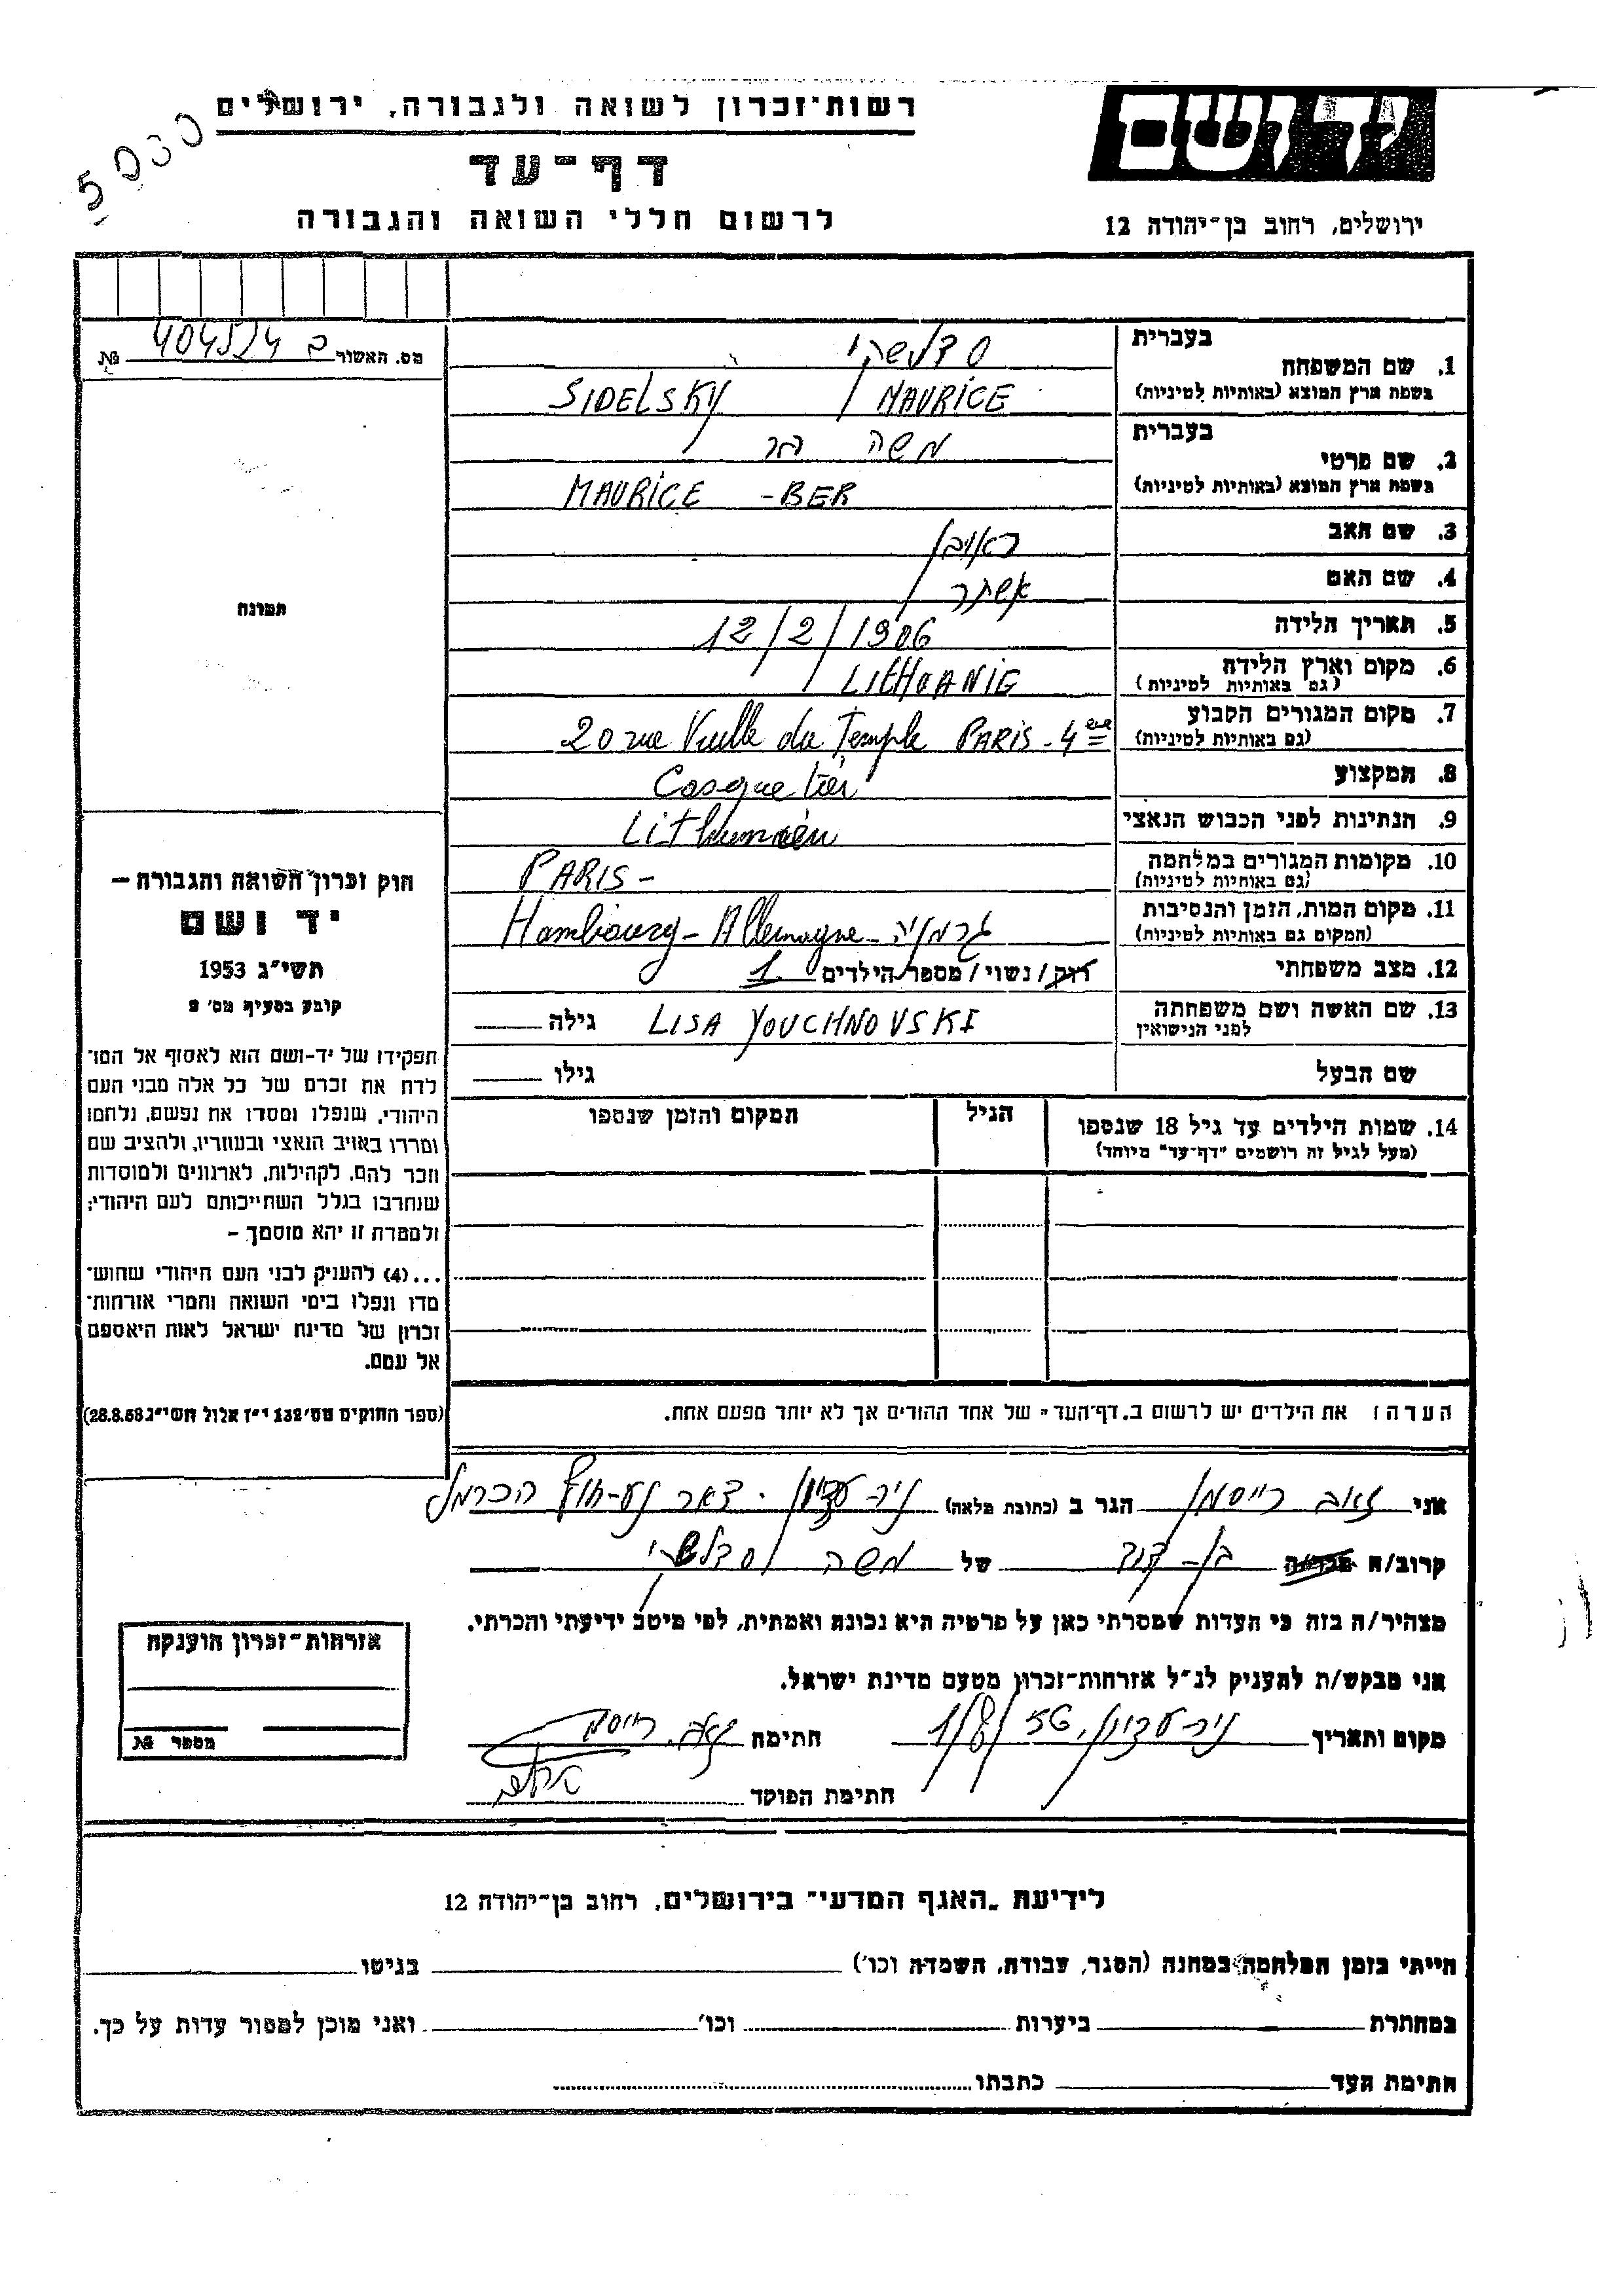 5030
רשות־זכרון לשואה ולגבורה, ירושלים
דף־עד
לרשום חללי השואה והגבורה
יד ושם
ירושלים, רחוב בן־יהודה 12
מס. האשור ב 404524 №
בעברית
1. שם המשפחה סדלסקי
בשפת ארץ המוצא (באותיות לטיניות) SIDELSKY / MAURICE
בעברית
2. שם פרטי משה בר
בשפת ארץ המוצא (באותיות לטיניות) MAURICE - BER
3. שם האב ראובן
4. שם האם אסתר
5. תאריך הלידה 12/2/1906
6. מקום וארץ הלידה LITHUANIE
(גם באותיות לטיניות)
7. מקום המגורים הקבוע 20 rue Vieille du Temple PARIS - 4ème
(גם באותיות לטיניות)
8. המקצוע Casquetier
9. הנתינות לפני הכבוש הנאצי Lithuanien
10. מקומות המגורים במלחמה PARIS -
(גם באותיות לטיניות)
11. מקום המות, הזמן והנסיבות Hambourg - Allemagne - גרמניה
(המקום גם באותיות לטיניות)
12. מצב משפחתי רווק / נשוי / מספר הילדים 1
13. שם האשה ושם משפחתה LISA YOUCHNOVSKI גילה
לפני הנישואין
שם הבעל גילו
14. שמות הילדים עד גיל 18 שנספו הגיל המקום והזמן שנספו
(מעל לגיל זה רושמים "דף־עד" מיוחד)
הערה: את הילדים יש לרשום ב„דף־העד" של אחד ההורים אך לא יותר מפעם אחת.
תמונה
חוק זכרון השואה והגבורה —
יד ושם
תשי"ג 1953
קובע בסעיף מס' 2
תפקידו של יד־ושם הוא לאסוף אל המו־
לדת את זכרם של כל אלה מבני העם
היהודי, שנפלו ומסרו את נפשם, נלחמו
ומרדו באויב הנאצי ובעוזריו, ולהציב שם
וזכר להם, לקהילות, לארגונים ולמוסדות
שנחרבו בגלל השתייכותם לעם היהודי;
ולמטרה זו יהא מוסמך —
...(4) להעניק לבני העם היהודי שהוש־
מדו ונפלו בימי השואה והמרי אזרחות־
זכרון של מדינת ישראל לאות היאספם
אל עמם.
(ספר החוקים מס' 132 י"ז אלול תשי"ג 28.8.53)
אני זאב רייסמן הגר ב (כתובת מלאה) ניר-עציון. דאר נע-חוף הכרמל
קרוב/ה מכר/ה בן-דוד של משה סדלסקי
מצהיר/ה בזה כי העדות שמסרתי כאן על פרטיה היא נכונה ואמתית, לפי מיטב ידיעתי והכרתי.
אני מבקש/ת להעניק לנ"ל אזרחות־זכרון מטעם מדינת ישראל.
מקום ותאריך ניר-עציון, 1/8/56 חתימה זאב רייסמן
חתימת הפוקד
אזרחות־זכרון הוענקה
מספר №
לידיעת „האגף המדעי" בירושלים, רחוב בן־יהודה 12
הייתי בזמן המלחמה במחנה (הסגר, עבודה, השמדה וכו') בגיטו
במחתרת ביערות וכו' ואני מוכן למסור עדות על כך.
חתימת העד כתבתו